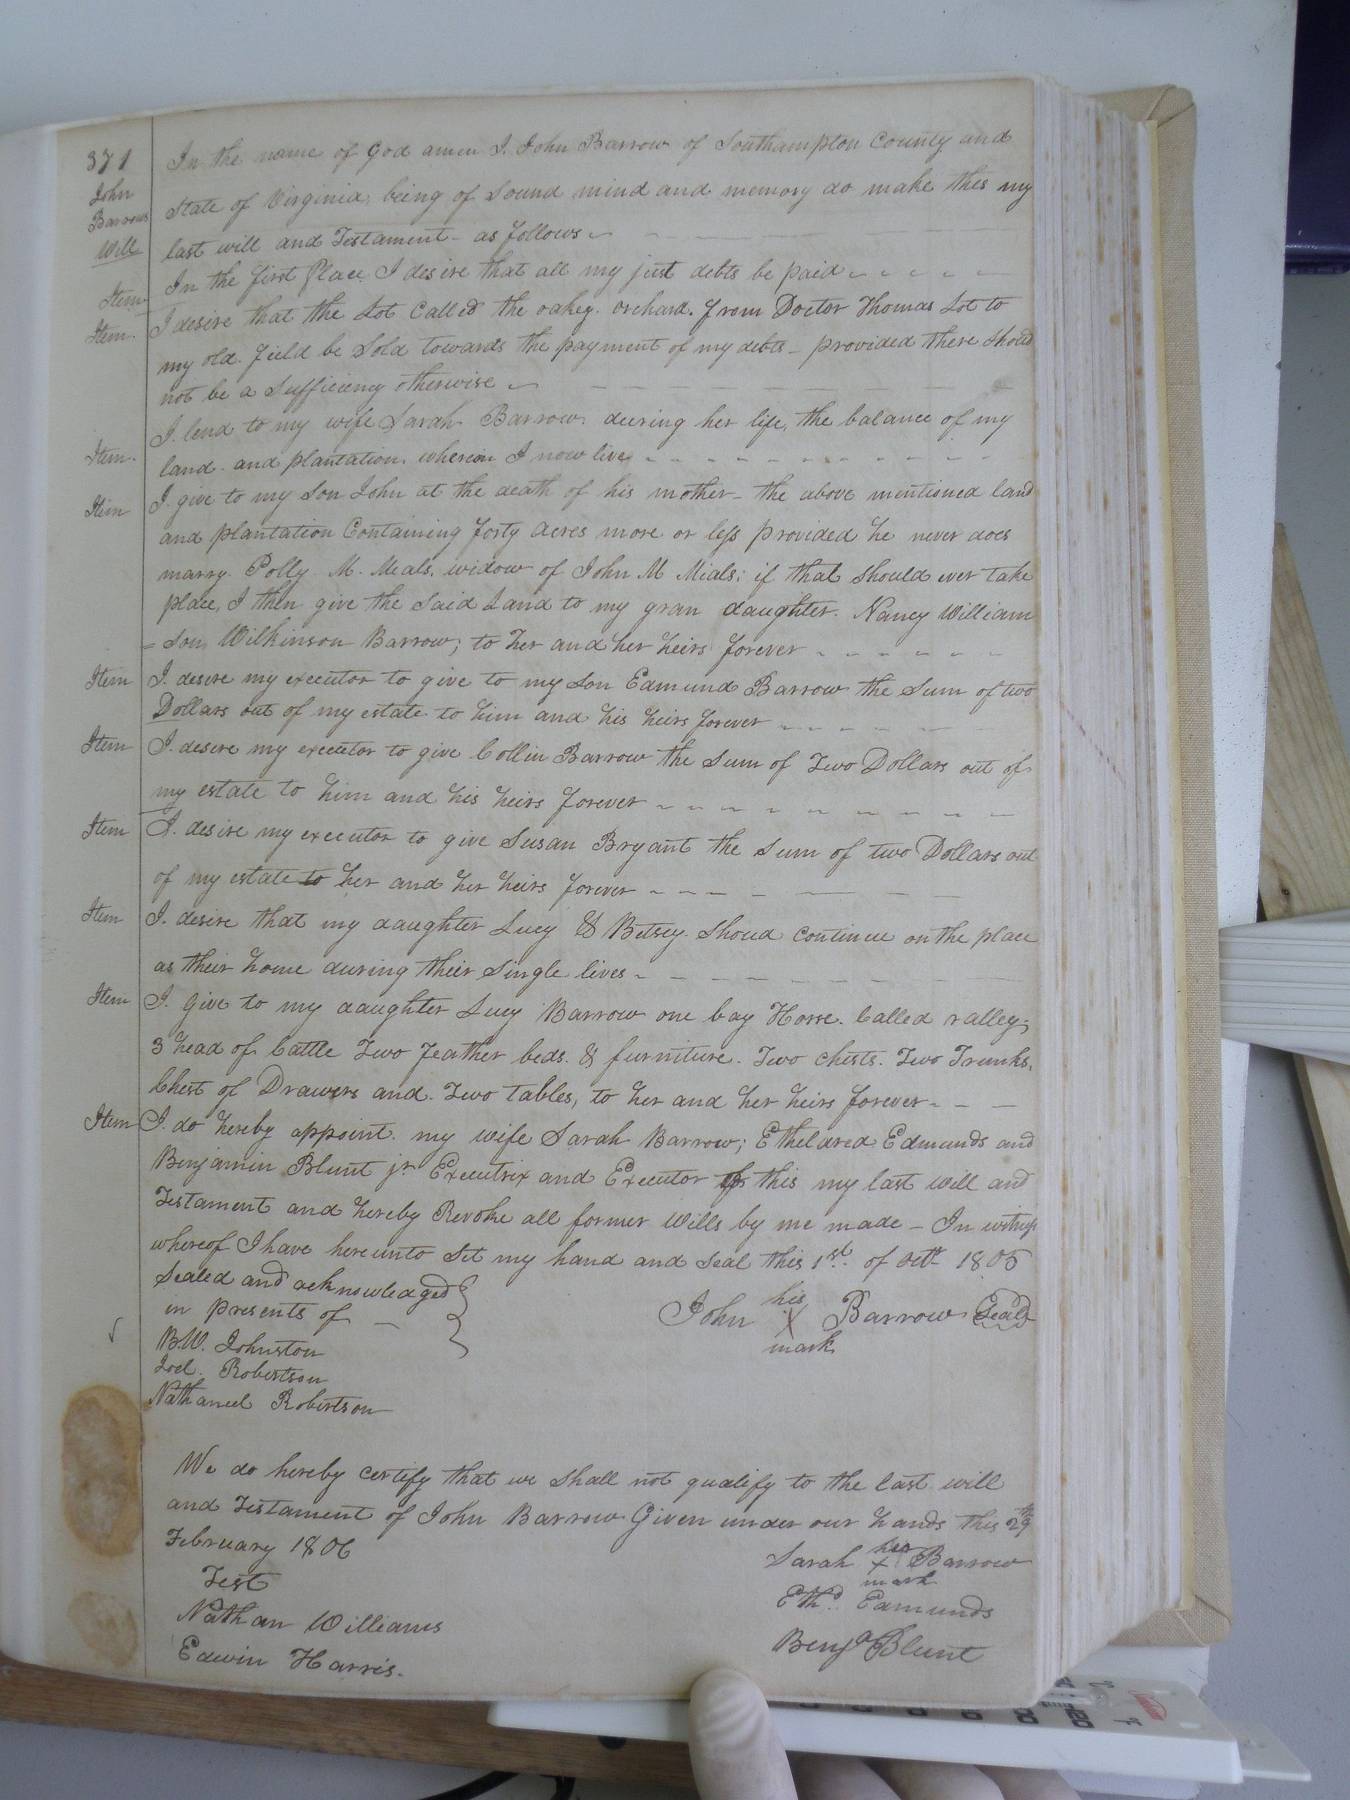 371
John
Barrows
Will
In the name of God amen I. John Barrow of Southampton County and
State of Virginia, being of Sound mind and memory do make this my
last will and Testament - as follows
Item
In the first place I desire that all my just debts be paid
Item
I desire that the Lot Called the oakey. orchard. from Doctor Thomas Lot to
my old. field be Sold towards the payment of my debts - provided there should
not be a Sufficiency otherwise
Item.
I. lend to my wife Sarah Barrow. during her life, the balance of my
land. and plantation. whereon I now live
Item
I. give to my Son John at the death of his mother - the above mentioned land
and plantation Containing forty acres more or less provided he never does
marry. Polly M. Meals, widow of John M Mials; if that should ever take
place, I then give the Said Land to my gran daughter. Nancy William
= son Wilkinson Barrow; to her and her heirs forever
Item
I. desire my executor to give to my Son Edmund Barrow the Sum of two
Dollars out of my estate to him and his heirs forever
Item
I. desire my executor to give Collin Barrow the Sum of Two Dollars out of
my estate to him and his heirs forever
Item
I. desire my executor to give Susan Bryant the Sum of two Dollars out
of my estate to her and her heirs forever
Item
I. desire that my daughter Lucy & Betsey. Shoud continue on the place
as their home during their single lives
Item
I. Give to my daughter Lucy Barrow one bay Horse. Called ralley;
3 head of Cattle Two feather beds. & furniture. Two chests. Two Trunks,
Chest of Drawers and. Two tables, to her and her heirs forever
Item
I. do hereby appoint. my wife Sarah Barrow; Etheldred Edmunds and
Benjamin Blunt jr Executrix and Executor this my last will and
Testament and hereby Revoke all former Wills by me made - In witness
whereof I have hereunto Set my hand and Seal this 1st. of Octr 1805
Sealed and acknowledged
in presents of
B.W. Johnston
Joel. Robertson
Nathaniel Robertson
his
John X Barrow Seal
mark
We do hereby certify that we shall not qualify to the last will
and Testament of John Barrow Given under our hands this
February 1806
Test
Nathan Williams
Edwin Harris.
her
Sarah X Barrow
mark
Ethd. Edmunds
Benja Blunt